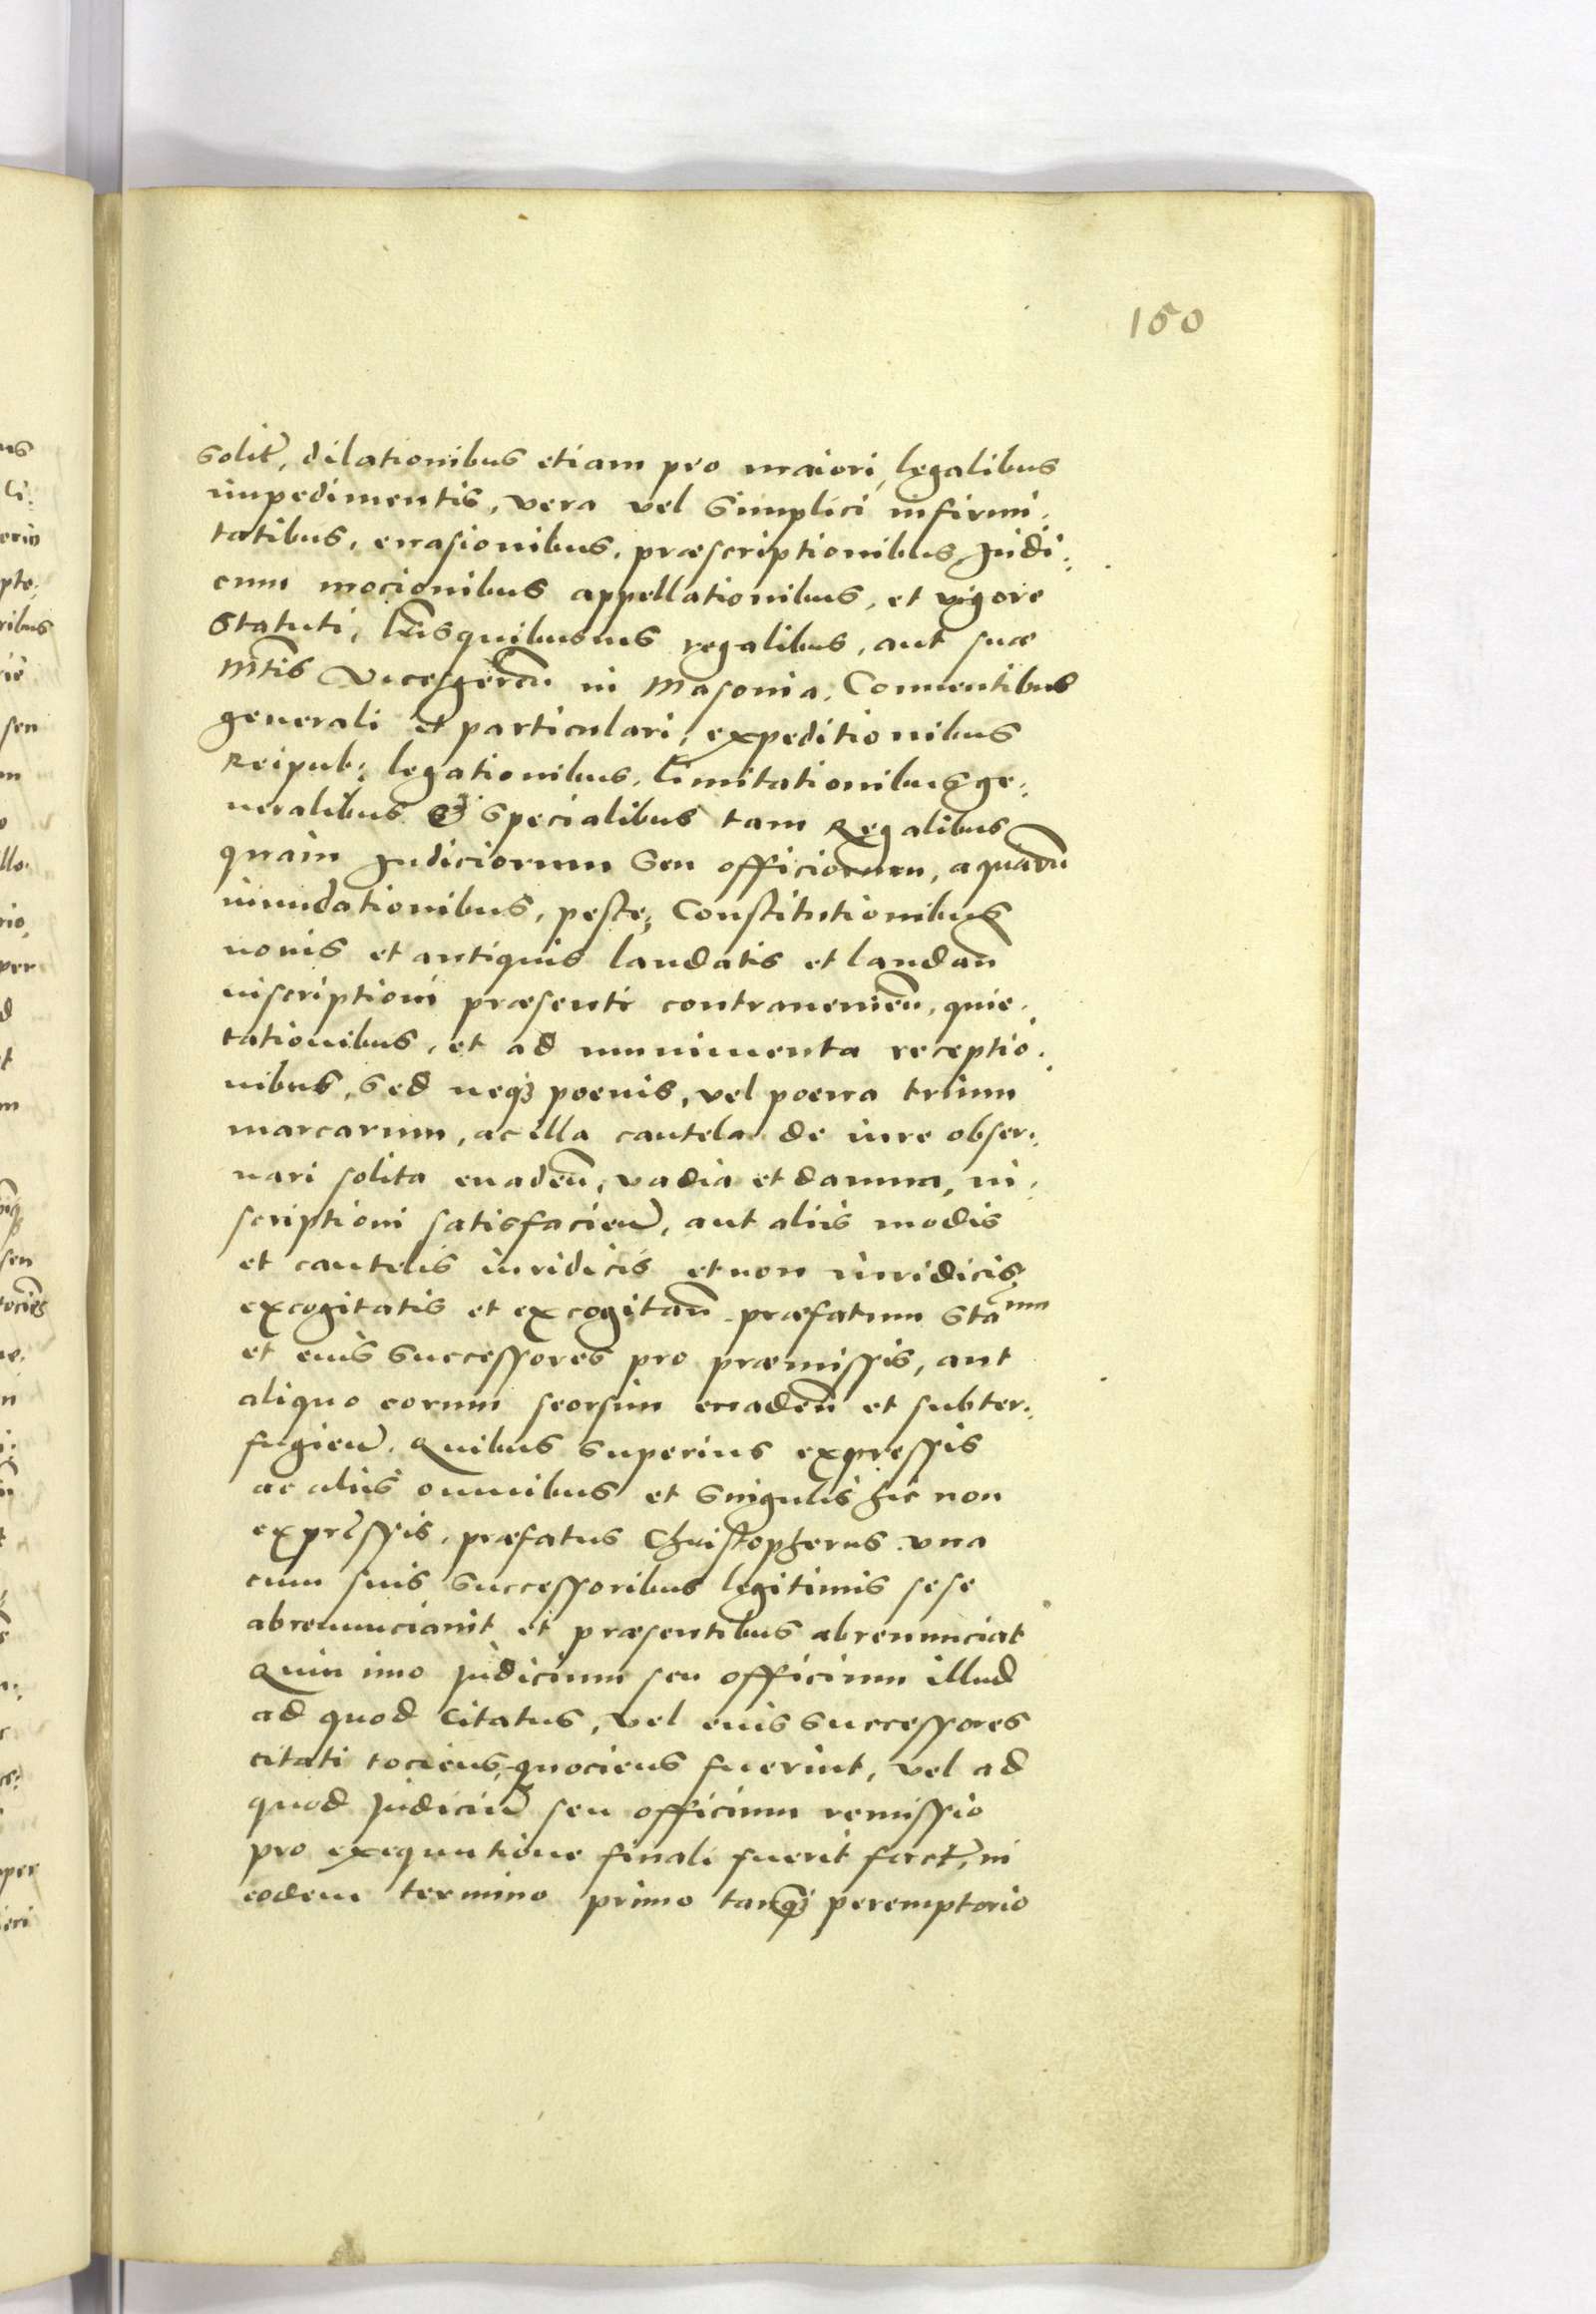 150
solit̃, dilationibus etiam pro maiori, legalibus
impedimentis, vera vel simplici infirmi:
tatibus, euasionibus, præscriptionibus, Judi:
cum mocionibus appellationibus, et vigore
Statuti, l̃r̃isquibusuis regalibus, aut suæ
M̃tis Vicesgereñ in Masouia, Conuentibus
generali et particulari, expeditionibus
Reipub: legationibus, limitationibus ge:
neralibus & specialibus tam Regalibus
quam Judiciorum seu officiorum, aquarũ
inundationibus, peste, Constitutionibus
nouis et antiquis laudatis et laudañ
inscriptioni præsenti contrauenieñ, quie:
tationibus, et ad munimenta receptio:
nibus, sed neqȝ poenis, vel poena trium
marcarum, ac illa cautela de iure obser:
uari solita euadeñ, vadia et damna, in:
scriptioni satisfacieñ, aut aliis modis
et cautelis iuridicis et non iuridicis
excogitatis et excogitañ præfatum Sta num
et eius successores pro præmissis, aut
aliquo eorum seorsim euadeñ et subter:
fugieñ. Quibus superius expressis
ac aliis omnibus et singulis hic non
expressis, præfatus Christopherus vna
cum suis successoribus legitimis sese
abrenunciauit et præsentibus abrenunciat
Quin imo Judicium seu officium illud
ad quod citatus, vel eius successores
citati tociens, quociens fuerint, vel ad
quod Judiciũ seu officium remissio
pro exequutione finali fuerit fact̃, in
eodem termino primo tanqȝ peremptorio